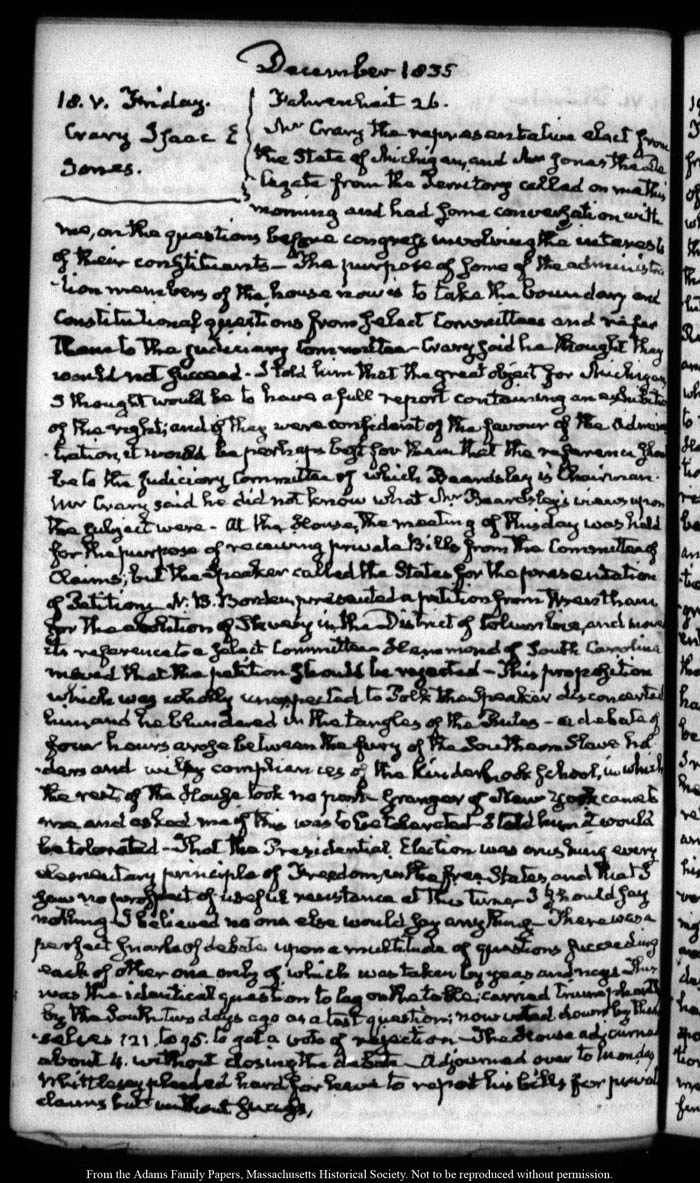 December 1835
18. V. Friday.
Crary Isaac E
Jones.
Fahrenheit 26.
Mr Crary the representative elect from
the State of Michigan, and Mr Jones the De
legate from the Territory called on me this
morning and had some conversation with
me, on the questions before Congress involving the interests
of their constituents— The purpose of some of the administra
tion members of the house now is to take the boundary and
Constitutional questions from select Committees and refer
them to the Judiciary Committee— Crary said he thought they
would not succeed— I told him that the great object for Michigan
I thought would be to have a full report containing an exhibition
of the right; and if they were confident of the favour of the Adminis
tration, it would be perhaps best for them that the reference should
be to the Judiciary Committee of which Beardsley is Chairman.
Mr Crary said he did not know what Mr Beardsley's views upon
the subject were— At the House, the meeting of this day was held
for the purpose of receiving private Bills from the Committee of
Claims; but the Speaker called the States for the presentation
of Petitions N. B. Borden, presented a petition from Wrentham
for the abolition of Slavery in the District of Columbia, and moved
its reference to a select Committee— Hammond of South Carolina
moved that the petition should be rejected— This proposition
which was wholly unexpected to Polk the Speaker disconcerted
him, and he blundered in the tangles of the Rules— a debate of
four hours arose between the fury of the Southern Slave hol
ders and wily compliances of the Kinderhook School, in which
the rest of the House took no part. Granger of New York came to
me and asked me if this was to be tolerated— I told him it would
be tolerated— That the Presidential Election was crushing every
elementary principle of Freedom, in the free States, and that I
saw no prospect of useful resistance at this time. I should say
nothing. I believed no one else would say anything— There was a
perfect snarl of debate upon a multitude of questions succeeding
each other one only of which was taken by yeas and nays This
was the identical question to lay on the table; carried triumphantly
by the South two days ago as a test question; now voted down by them
selves 121. to 95. to get a vote of rejection— The House adjourned
about 4. without closing the debate— Adjourned over to Monday
Whittlesey pleaded hard for leave to report his bills for private
claims but without success,
From the Adams Family Papers, Massachusetts Historical Society. Not to be reproduced without permission.